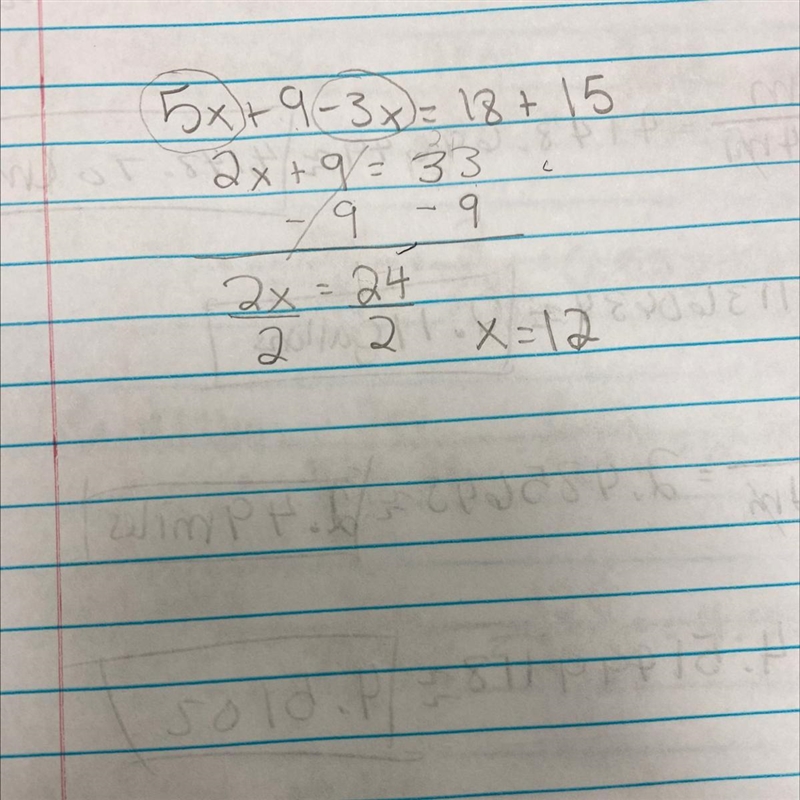 5x + 9 - 3x = 18 + 15
2x + 9 = 33
- 9 - 9
2x = 24
2 2 x = 12